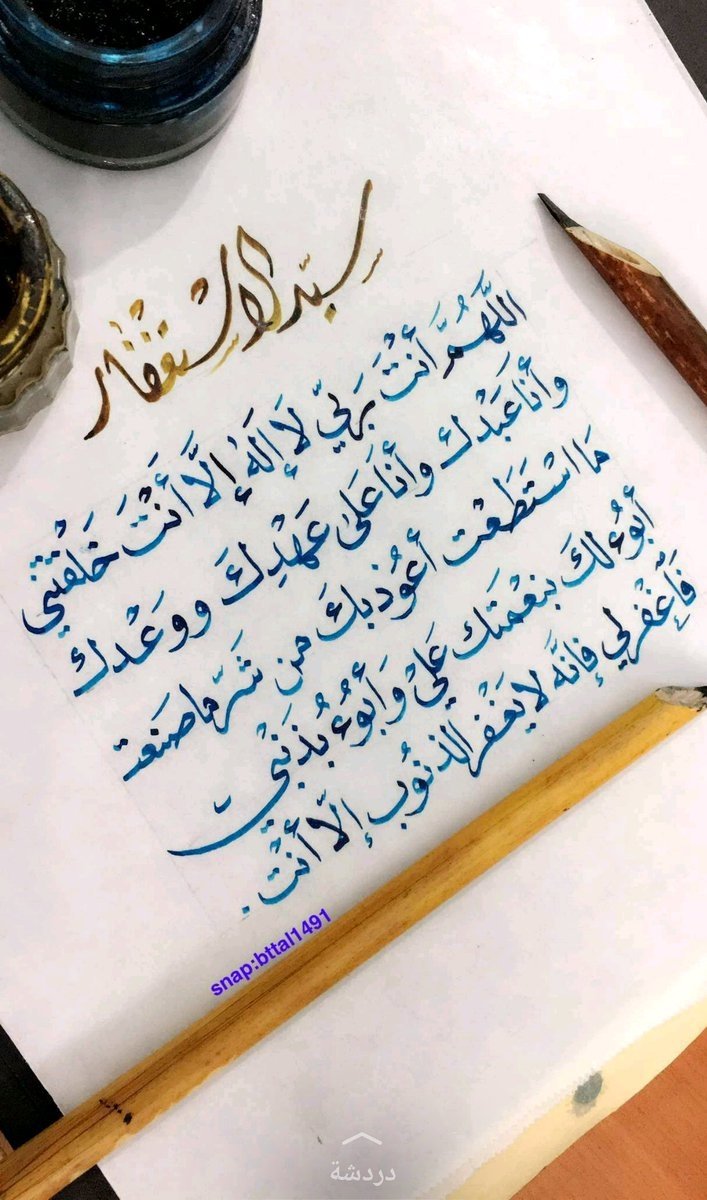 سيد الاستغفار
اللَّهُمَّ أَنْتَ رَبِّي لَا إِلَهَ إِلَّا أَنْتَ خَلَقْتَنِي
وأنا عَبْدك وأنا عَلَى عَهْدِكَ ووَعْدك
مَا اسْتَطَعْت أعُوذ بكَ من شَرّ ما صَنعت
أبُوء لكَ بنعْمَتك عَليّ وَأبُوء بُذَنْبي
فَاْغْفر لي فإنَّه لا يَغْفر الذنُوب إلّا أنْتَ.
snap:bttal1491
دردشة